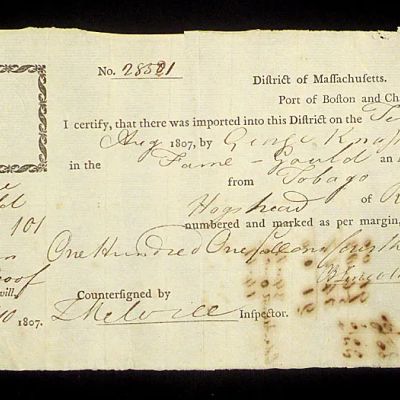 No. 28581
District of Massachusetts.
Port of Boston and Cha
I certify, that there was imported into this District on the Te
Aug 1807, by George Knap
in the Fame - Gould an
101
from Tobago
Hogshead of R
numbered and marked as per margin,
One Hundred One Gallons fourth
Proof
will.
Countersigned by
B Lincoln
10 1807.
Melvill Inspector.